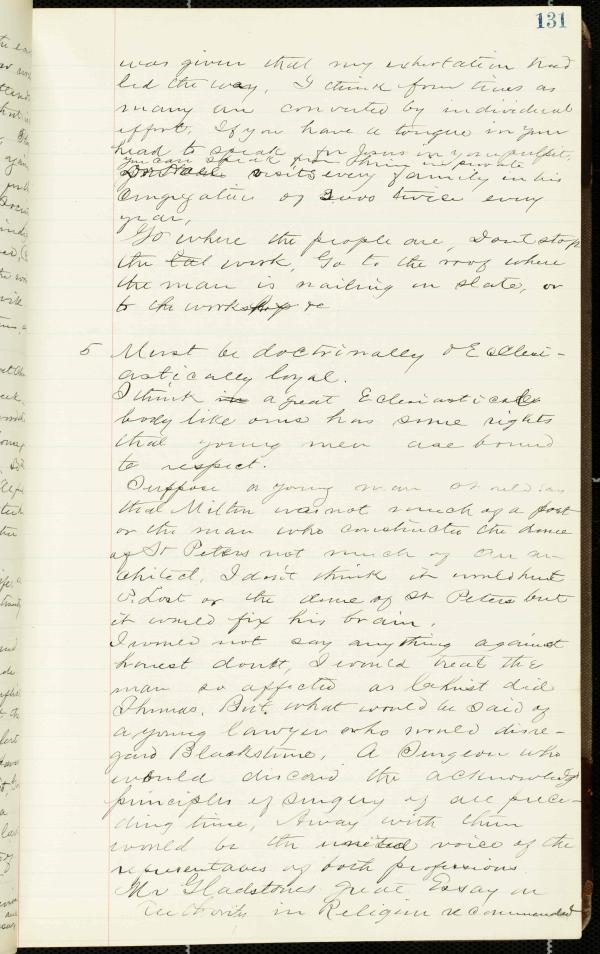 131
was given that my exhortation had
led the way, I think four times as
many are converted by individual
effort. If you have a tongue in your
head to speak for Jesus in your pulpit,
you can speak from Him in private
visits every family in his
Congregation of 2000 twice every
year,
Go where the people are, Dont stop
the work, Go to the roof where
the man is nailing on slate, or
to the workshop &c
5 Must be doctrinally & Ecclesi-
astically loyal.
I think in a great Ecclesiastical
body like ours has some rights
that young men are bound
to respect.
Suppose a young man should say
that Milton was not much of a poet
or the man who constructed the dome
of St Peters not much of an ar
chitect, I don't think it would hurt
P. Lost or the dome of St Peters but
it would fix his brain.
I would not say anything against
honest doubt, I would treat the
man so affected as Christ did
Thomas. But what would be said of
a young lawyer who would disre-
gard Blackstone, A Surgeon who
would discard the acknowledged
principles of surgery of all prece-
ding time, Away with them
would be the united voice of the
representatives of both professions
Mr Gladstones great Essay on
Authority in Religion recommended